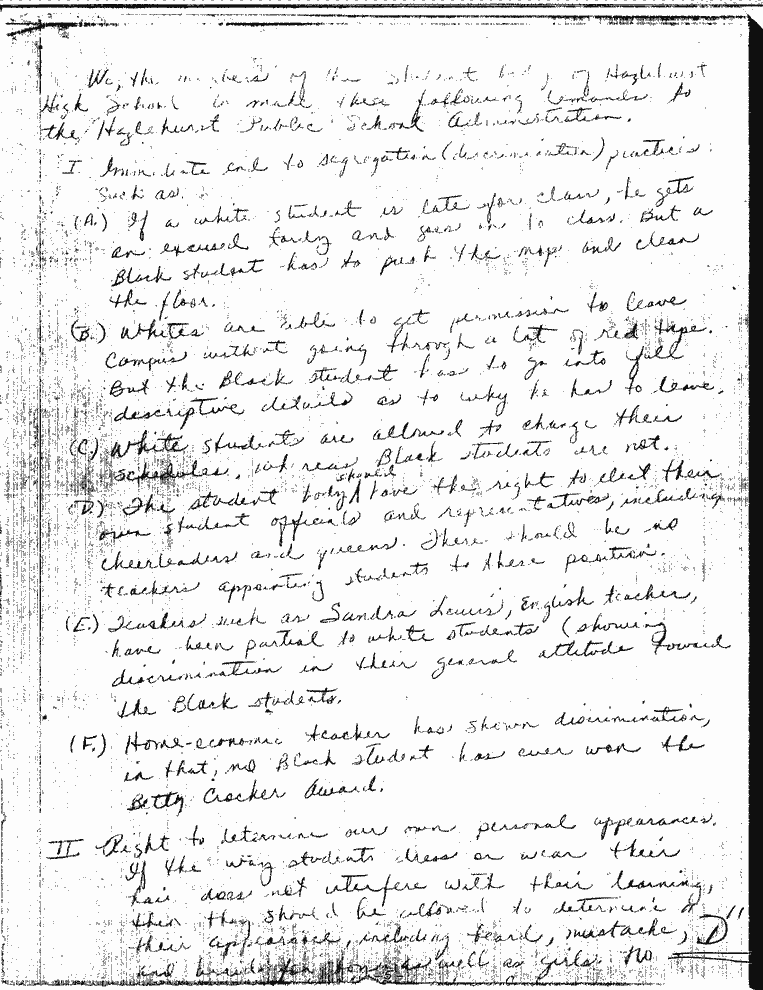 We, the members of the student body of Hazlehurst
High School do make these following demands to
the Hazlehurst Public School Administration.
I Immediate end to segregation (discrimination) practices
such as.
(A.) If a white student is late for class, he gets
an excused tardy and goes on to class. But a
Black student has to push the mop and clean
the floor.
(B.) Whites are able to get permission to leave
campus without going through a lot of red tape.
But the Black student has to go into full
descriptive details as to why he has to leave.
(C) White students are allowed to change their
schedules, whereas Black students are not.
(D.) The student body should have the right to elect their
own student officials and representatives, including
cheerleaders and queens. There should be no
teachers appointing students to these position.
(E.) Teachers such as Sandra Lewis, English teacher,
have been partial to white students (showing
discrimination in their general attitude toward
the Black students.
(F.) Home-economic teacher has shown discrimination,
in that, no Black student has ever won the
Betty Crocker Award.
II Right to determine our own personal appearances.
If the way students dress or wear their
hair does not interfere with their learning,
then they should be allowed to determine
their appearance, including beard, mustache,
and braids for boys as well as girls. No
D"